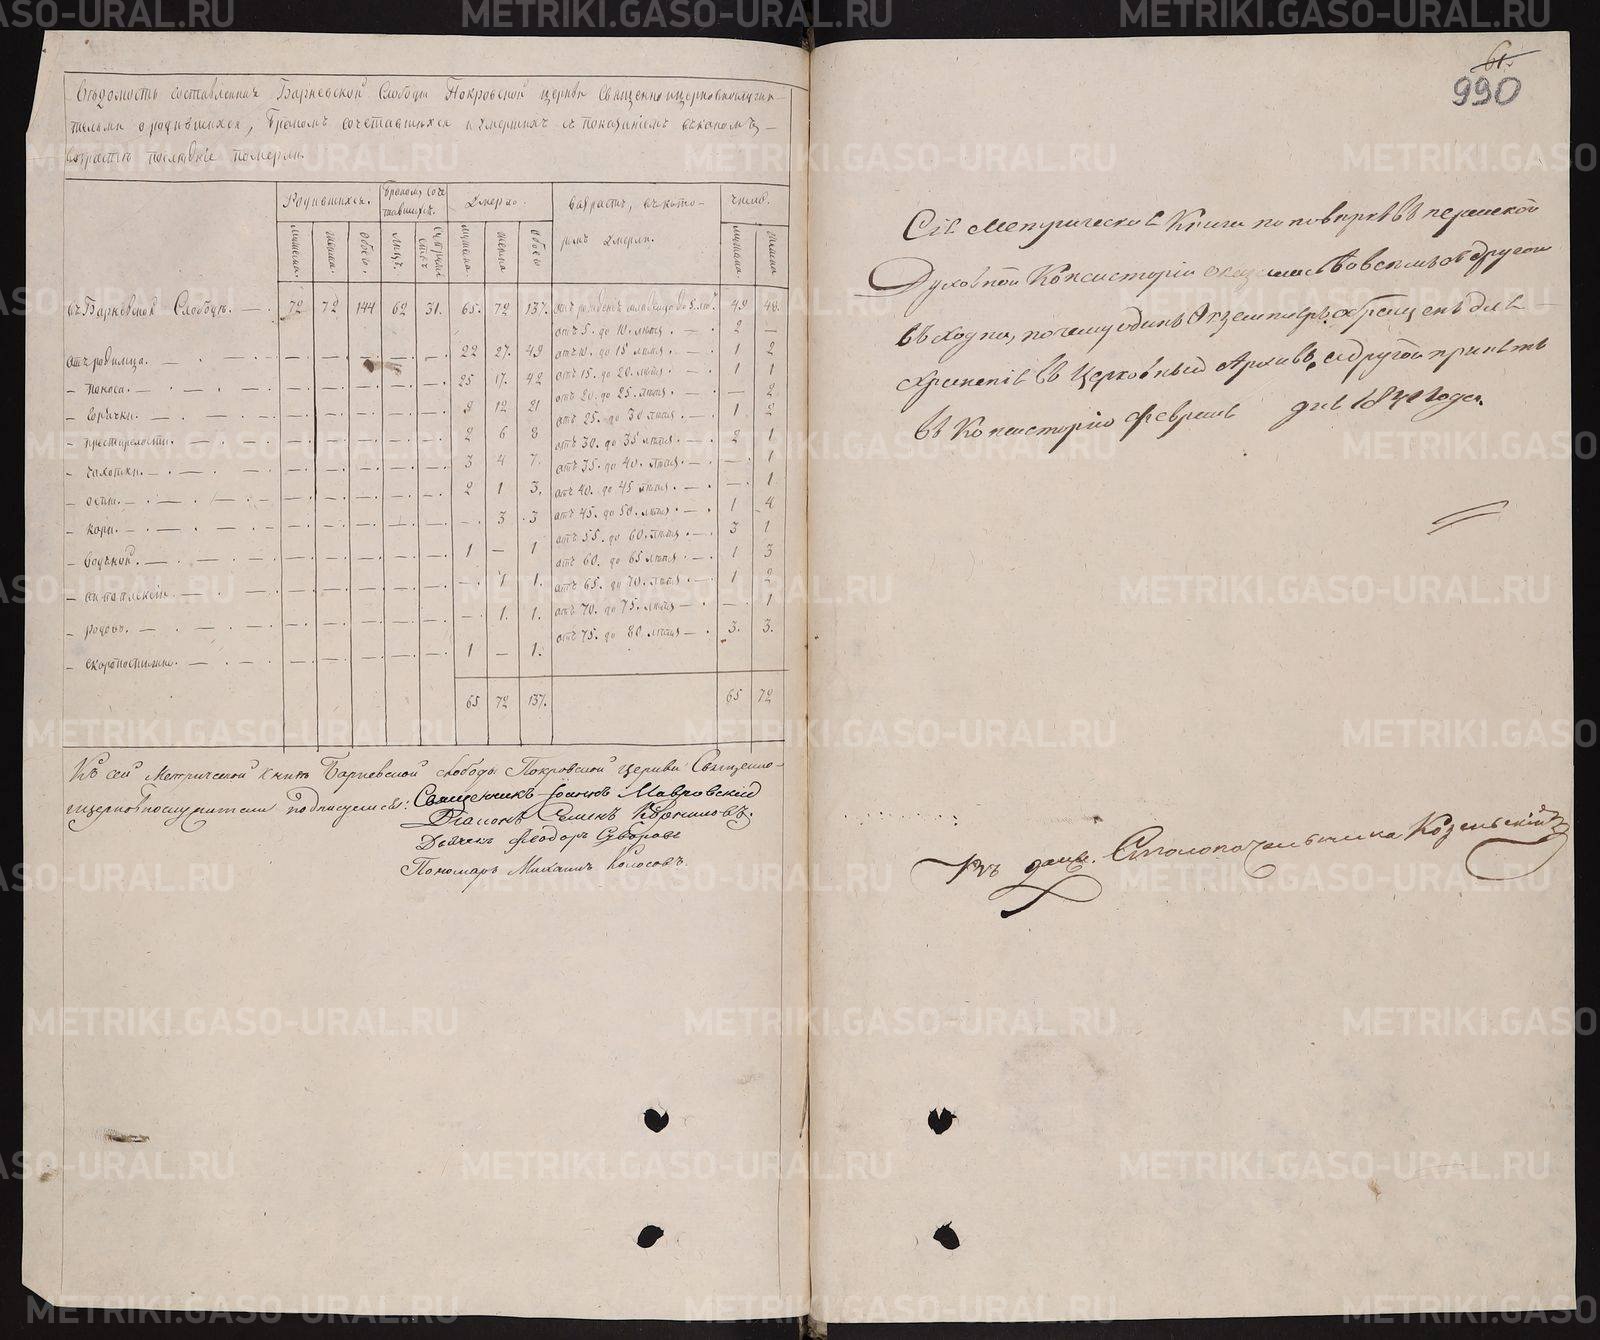 Ведомость составленная Барневской Слободы Покровской церкви Священноицерковнослужи-
телями о родившихся, браком сочетавшихся и умерших с показанием в каком
возрасте последние померли.
Родившихся. Браком соче-тавшихся. Умерло. Возраст, в кото-ром умерли. Число.
мужеска. женска. обоего. лиц. мужеска. женска. обоего мужеска. женска
въ Барневской Слободе. 72 72 144 62 31. 65. 72 137. отъ рождения до 5 лет. 49 48.
отъ 5. до 10. летъ. 2 —
отъ родимца. 22 27. 49 отъ 10. до 15 летъ. 1 2
отъ 15. до 20. летъ. 1 1
— поноса. 25 17. 42 отъ 20. до 25. летъ. — 2
— горячки. 9 12 21 отъ 25. до 30 летъ. 1 2
— престарелости. 2 6 8 отъ 30. до 35 летъ. 2 1
— чахотки. 3 4 7. отъ 35. до 40. летъ. — 1
— оспы. 2 1 3. отъ 40. до 45 летъ. — 1
— кори. — 3 3 отъ 45. до 50. летъ. 1 4
отъ 55. до 60. летъ. 3 1
— водяной. 1 — 1 отъ 60. до 65 летъ. 1 3
— 1 1. отъ 65. до 70. летъ. 1 2
— родовъ. — 1. 1. отъ 70. до 75. летъ — 1
отъ 75. до 80. летъ 3. 3.
— скоропостижно. 1 — 1.
65 72 137. 65 72
Къ сей Метрической книге Барневской слободы Покровской церкви Священно-
ицерковнослужители подписуемся: Священникъ Иоаннъ Мавровский
Диаконъ Семенъ
Дьячекъ Феодоръ Суворовъ
Пономарь Михаилъ Колосовъ.
61.
990
Сіи Метрическія Книги по поверке въ пермской
Духовной Консисторіи одна съ другою
сходна, почему одинъ Экземпляръ обращенъ для
храненія въ Церковный Архивъ, а другой принятъ
въ Консисторію Февраля дня 1840 года.
Столоначальника Козельскій
METRIKI.GASO-URAL.RU